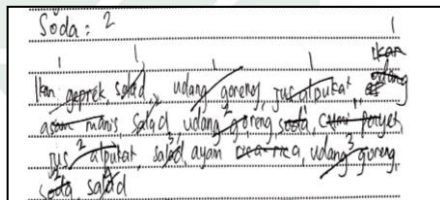 Soda : 2 1
1 1 1 1 ikan
Ikan geprek, salad, udang goreng, jus alpukat, udang
asam manis, salad, udang goreng, soda, cumi payet,
jus alpukat, salad, ayam rica rica, udang goreng,
soda, salad